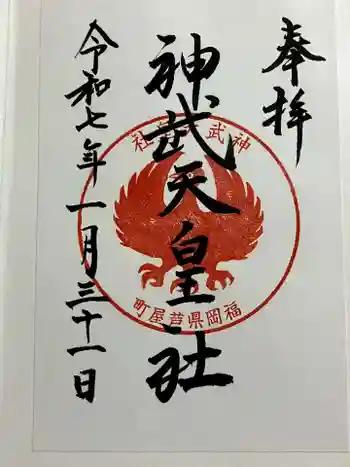 奉拝
神武天皇社
令和七年一月三十一日
福岡県芦屋町